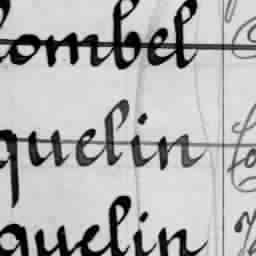 ombel
quelin
quelin